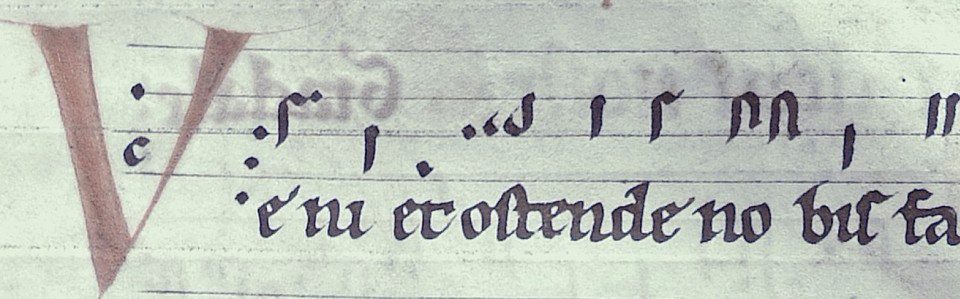 Veni et ostende nobis fa